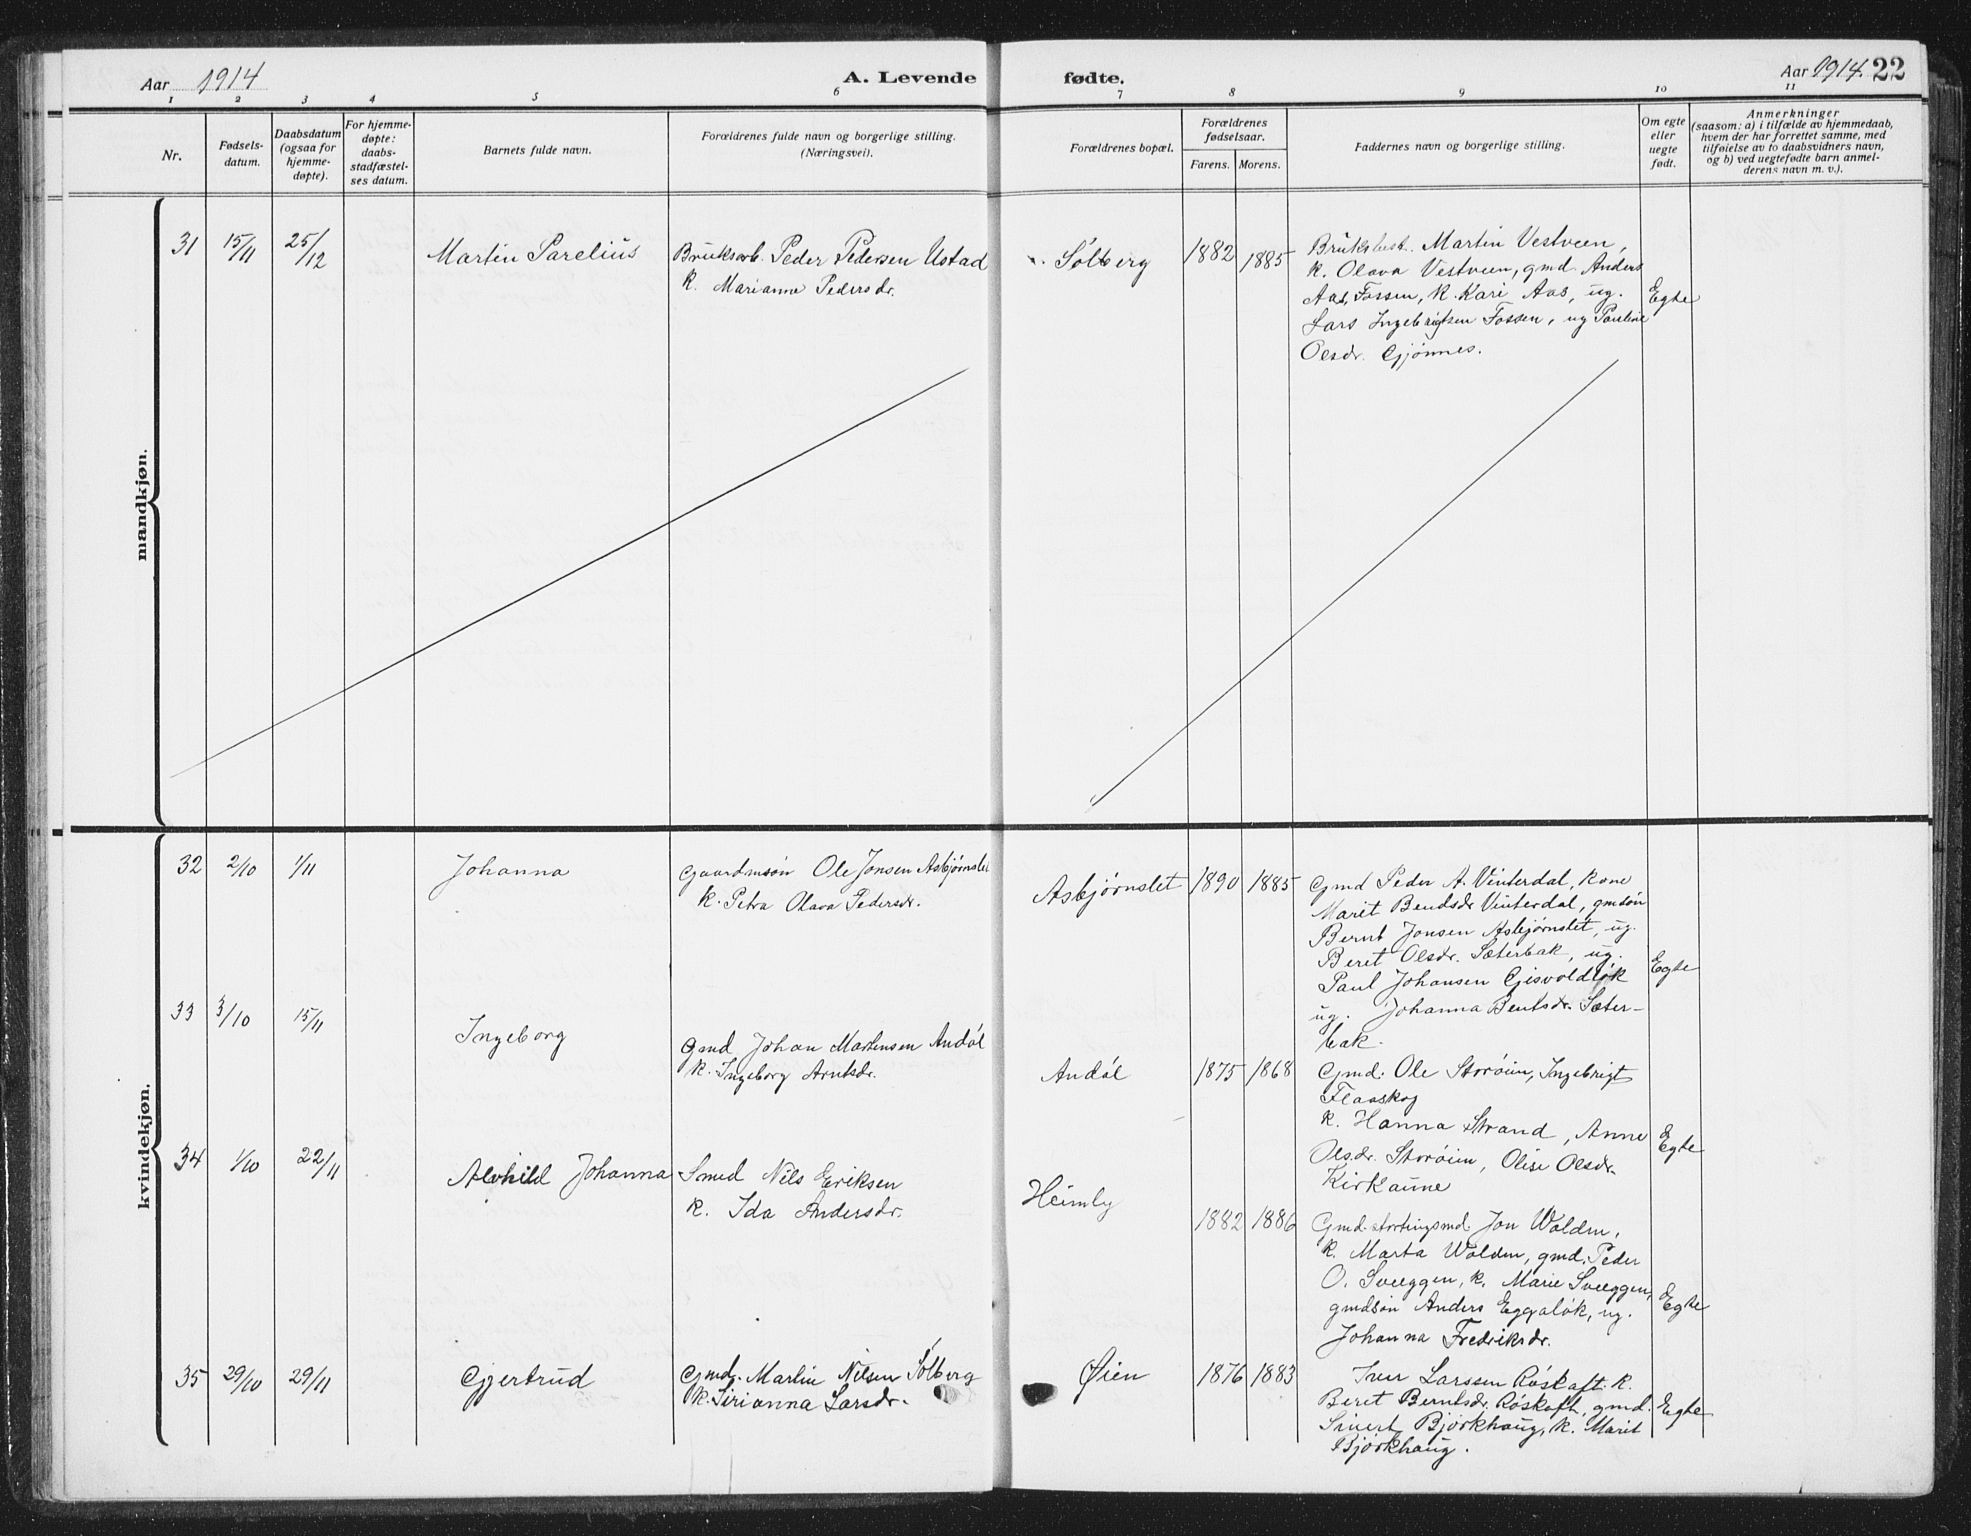 Aar 1914
A. Levende fødte.
Aar 1914. 22
1 2 3 4 5 6 7 8 9 10 11
Nr.
Fødsels-
datum.
Daabsdatum
(ogsaa for
hjemme-
døpte).
For hjemme-
døpte:
daabs-
stadfæstel-
ses datum.
Barnets fulde navn.
Forældrenes fulde navn og borgerlige stilling.
(Næringsvei).
Forældrenes bopæl.
Forældrenes
fødselsaar.
Farens. Morens.
Faddernes navn og borgerlige stilling.
Om egte
eller
uegte
født.
Anmerkninger
(saasom: a) i tilfælde av hjemmedaab,
hvem der har forrettet samme, med
tilføielse av to daabsvidners navn,
og b) ved uegtefødte barn anmel-
derens navn m. v.).
mandkjøn.
31 15/11 25/12
Martin Parelius
Bruksarb. Peder Pedersen Ustad
k. Marianne Pedersdr.
Solberg
1882 1885
Bruksbest. Martin Vestveen,
k. Olava Vestveen, gmd. Anders
Aas, Fossen, k. Kari Aas, ug.
Lars Ingebrigtsen Fossen, ug Pauline
Olsdr. Gjønnes.
Egte
kvindekjøn.
32 2/10 1/11
Johanna
Gaardmsøn Ole Jonsen Asbjørnslet
k. Petra Olava Pedersdr.
Asbjørnslet
1890 1885
Gmd Peder A. Vinterdal, kone
Marit Bendsdr Vinterdal, gmsøn
Bernt Jonsen Asbjørnslet, ug.
Beret Olsdr. Sæterbak, ug.
Paul Johansen Gisvoldløk
ug. Johanna Bentsdr. Sæter-
bak.
Egte
33 3/10 15/11
Ingeborg
Gmd Johan Martinsen Andøl
k. Ingeborg Arntsdr.
Andøl
1875 1868
Gmd. Ole Storøien, Ingebrigt
Flaaskog
k. Hanna Strand, Anne
Olsdr. Storøien, Olise Olsdr.
Kirkaune
Egte
34 1/10 22/11
Alvhild Johanna
Smed Nils Eriksen
k. Ida Andersdr.
Heimly
1882 1886
Gmd. stortingsmd. Jon Wolden,
k. Marta Wolden, gmd. Peder
O. Sveeggen, k. Marie Sveeggen,
gmdsøn Anders Eggaløk, ug.
Johanna Fredriksdr.
Egte
35 29/10 29/11
Gjertrud
Gmd. Martin Nilsen Solberg
k. Sirianna Larsdr.
Øien
1876 1883
Iver Larssen Røskaft k.
Beret Berntsdr. Røskaft, gmd.
Sivert Bjørkhaug, k. Marit
Bjørkhaug.
Egte